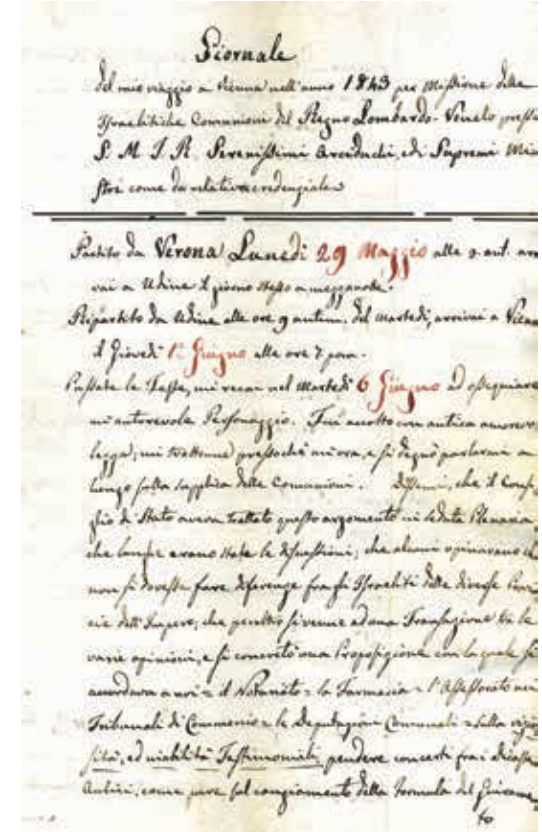 Giornale
del mio viaggio a Vienna nell'anno 1843 per Missione delle
Israelitiche Comunioni del Regno Lombardo-Veneto presso
S. M. I. R. Serenissimi Arciduchi, ed i Supremi Mini
stri come da relativa credenziale
Partito da Verona Lunedì 29 Maggio alle 2. ant. arri
vai a Udine il giorno stesso a mezzanotte.
Ripartito da Udine alle ore 9 antim. del martedì, arrivai a Vienna
il Giovedì 1º Giugno alle ore 7 pom.
Passate le Feste, mi recai nel martedì 6 Giugno ad ossequiare
un autorevole Personaggio. Fui accolto con antica amorevo
lezza; mi trattenne pressoché un'ora, e si degnò parlarmi a
lungo sulla supplica delle Comunioni. Dissemi, che il Consi
glio di Stato aveva trattato questo argomento in seduta Plenaria
che lunghe erano state le discussioni; che alcuni opinavano che
non si dovesse fare differenze fra gli Israeliti delle diverse Provin
cie dell'Impero; che peraltro si venne ad una Transazione tra le
varie opinioni, e si concretò una Proposizione con la quale si
accordava a noi = il Notariato = la Farmacia = l'Assessorato nei
Tribunali di Commercio = le Deputazioni Comunali = sulla
sità, ed inabilità Testimoniali, pendere concerti fra i diversi
Aulici, come pure sul cangiamento della Formula del Giuramen
to